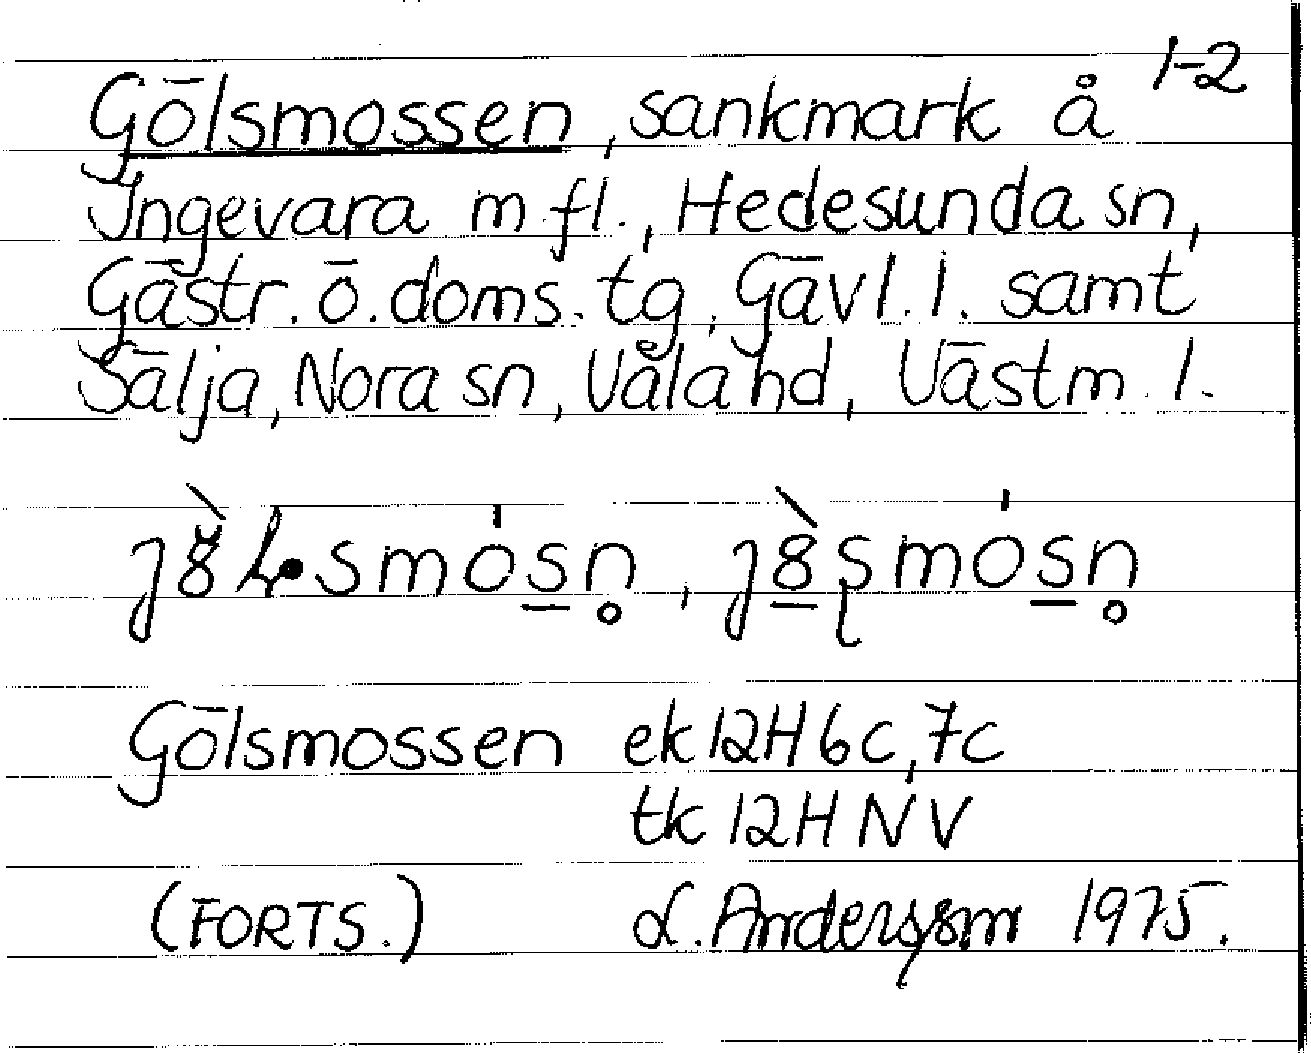 1-2
Gölsmossen, sankmark å
Ingevara m fl., Hedesunda sn,
Gästr. ö. doms. tg, Gävl. l. samt
Sälja, Nora sn, Våla hd, Västm. l.
Gölsmossen ek 12H 6c, 7c
tk 12H NV
(FORTS.) L. Andersson 1975.